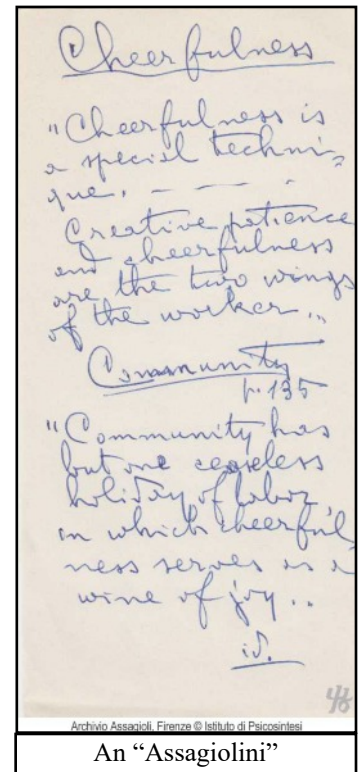 Cheerfulness
"Cheerfulness is
a special techni=
que. — — — .
Creative patience
and cheerfulness
are the two wings
of the worker „
Community
p. 135
"Community has
but one ceaseless
holiday of labor,
in which cheerful
ness serves as a
wine of joy „
id.
Archivio Assagioli, Firenze © Istituto di Psicosintesi
An “Assagiolini”